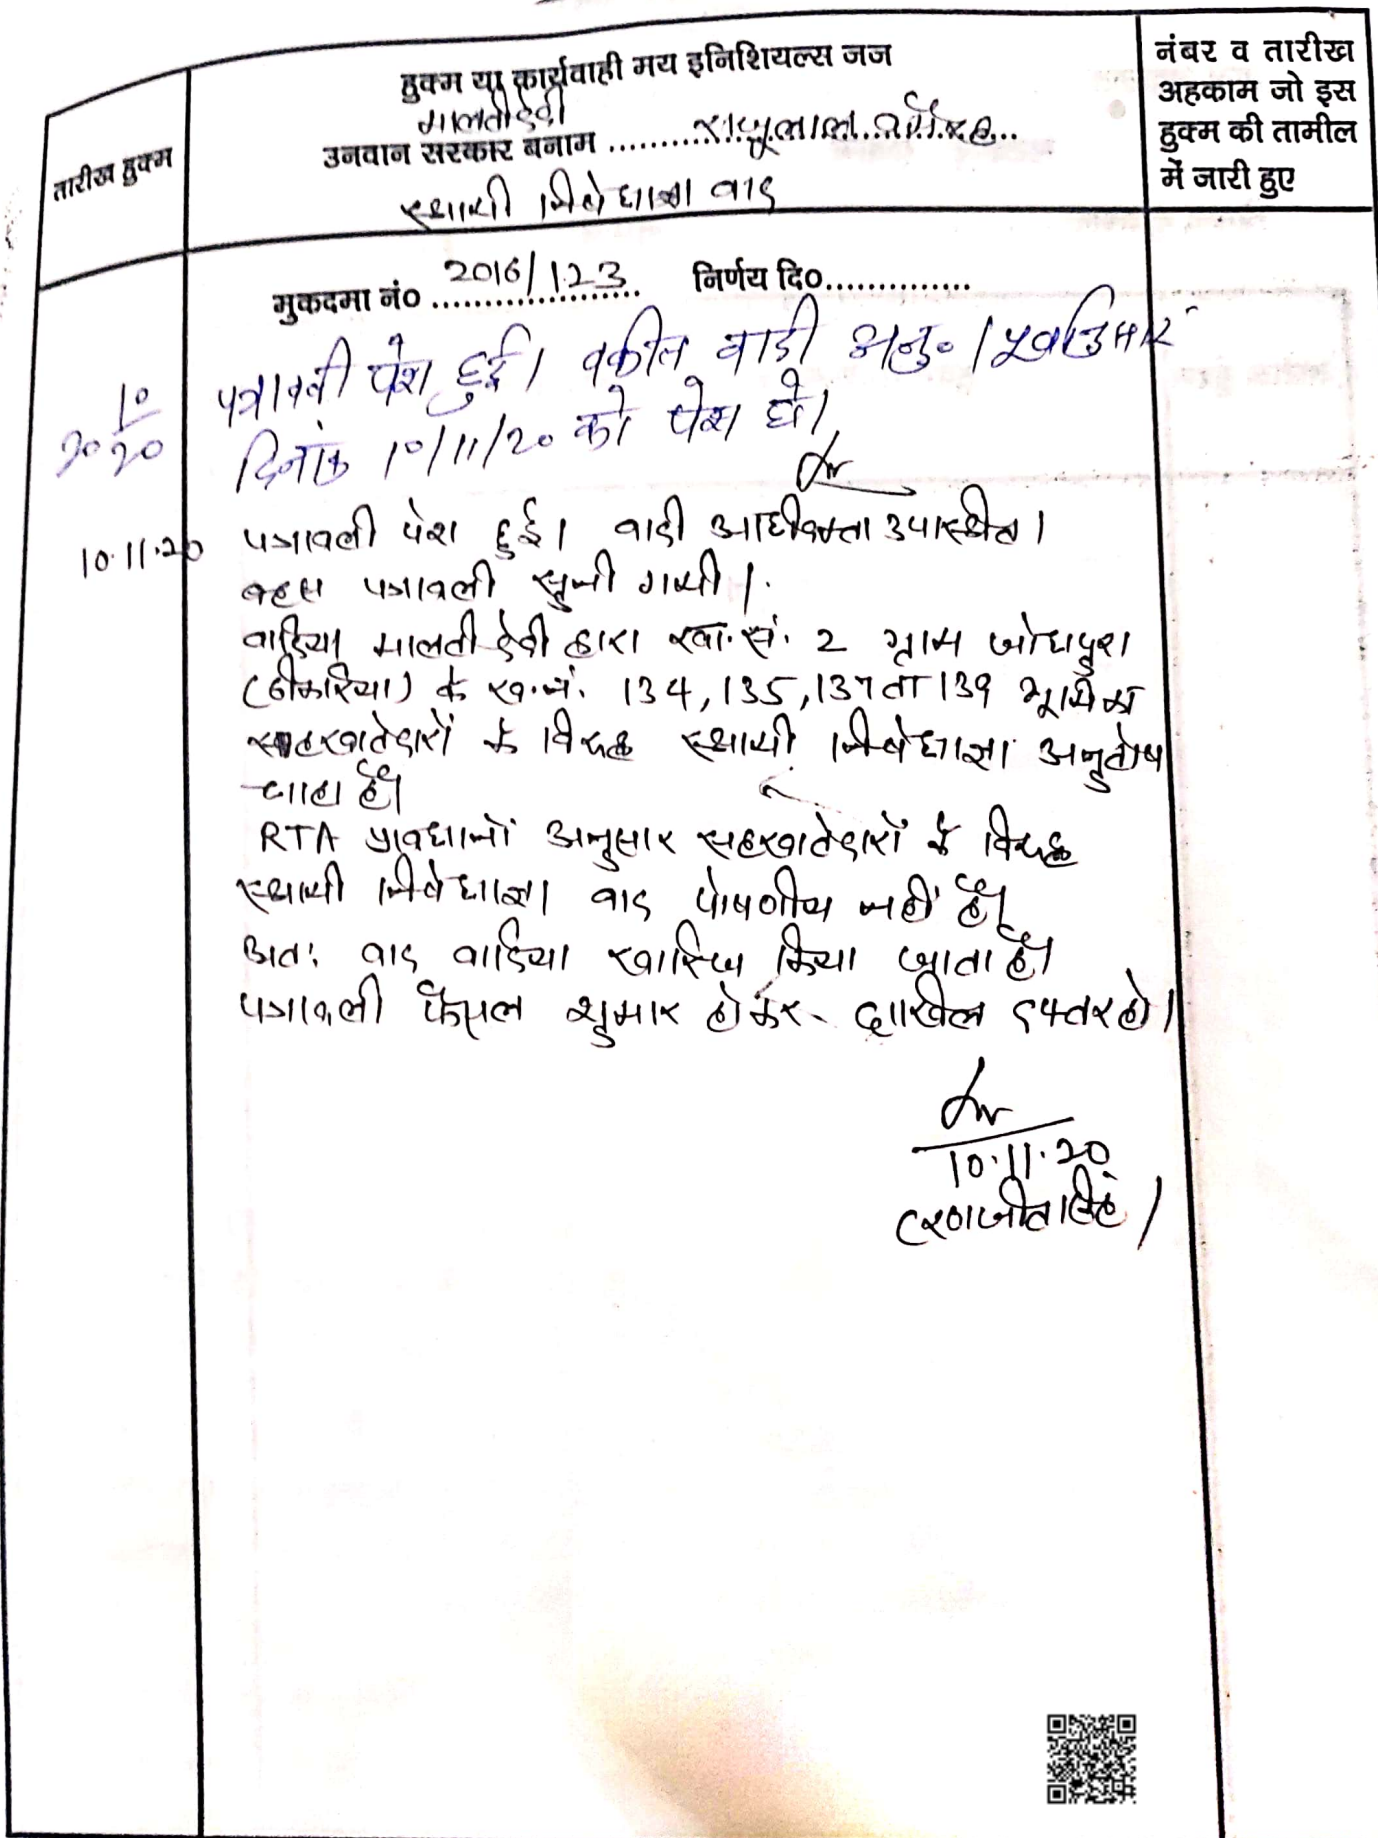 तारीख हुक्म
हुक्म या कार्यवाही मय इनिशियल्स जज
मालतीदेवी
उनवान सरकार बनाम ....................
स्थायी निषेधाज्ञा वाद
नंबर व तारीख
अहकाम जो इस
हुक्म की तामील
में जारी हुए
मुकदमा नं० 2016/123 निर्णय दि०..............
पत्रावली पेश हुई। वकील वादी अनु०। पूर्वानुसार
दिनांक 10/11/20 को पेश हो।
10.11.20 पत्रावली पेश हुई। वादी अधिवक्ता उपस्थित।
बहस पत्रावली सुनी गयी।
वादिया मालती देवी द्वारा खा.सं. 2 ग्राम जोधपुरा
(टीकरिया) के ख.नं. 134, 135, 137 ता 139 भूमि का
सहखातेदारों के विरूद्ध स्थायी निषेधाज्ञा अनुतोष
चाहा है।
RTA प्रावधानों अनुसार सहखातेदारों के विरूद्ध
स्थायी निषेधाज्ञा वाद पोषणीय नहीं है।
अतः वाद वादिया खारिज किया जाता है।
पत्रावली फैसल शुमार होकर दाखिल दफ्तर हो।
10.11.20
(रणजीत सिंह)